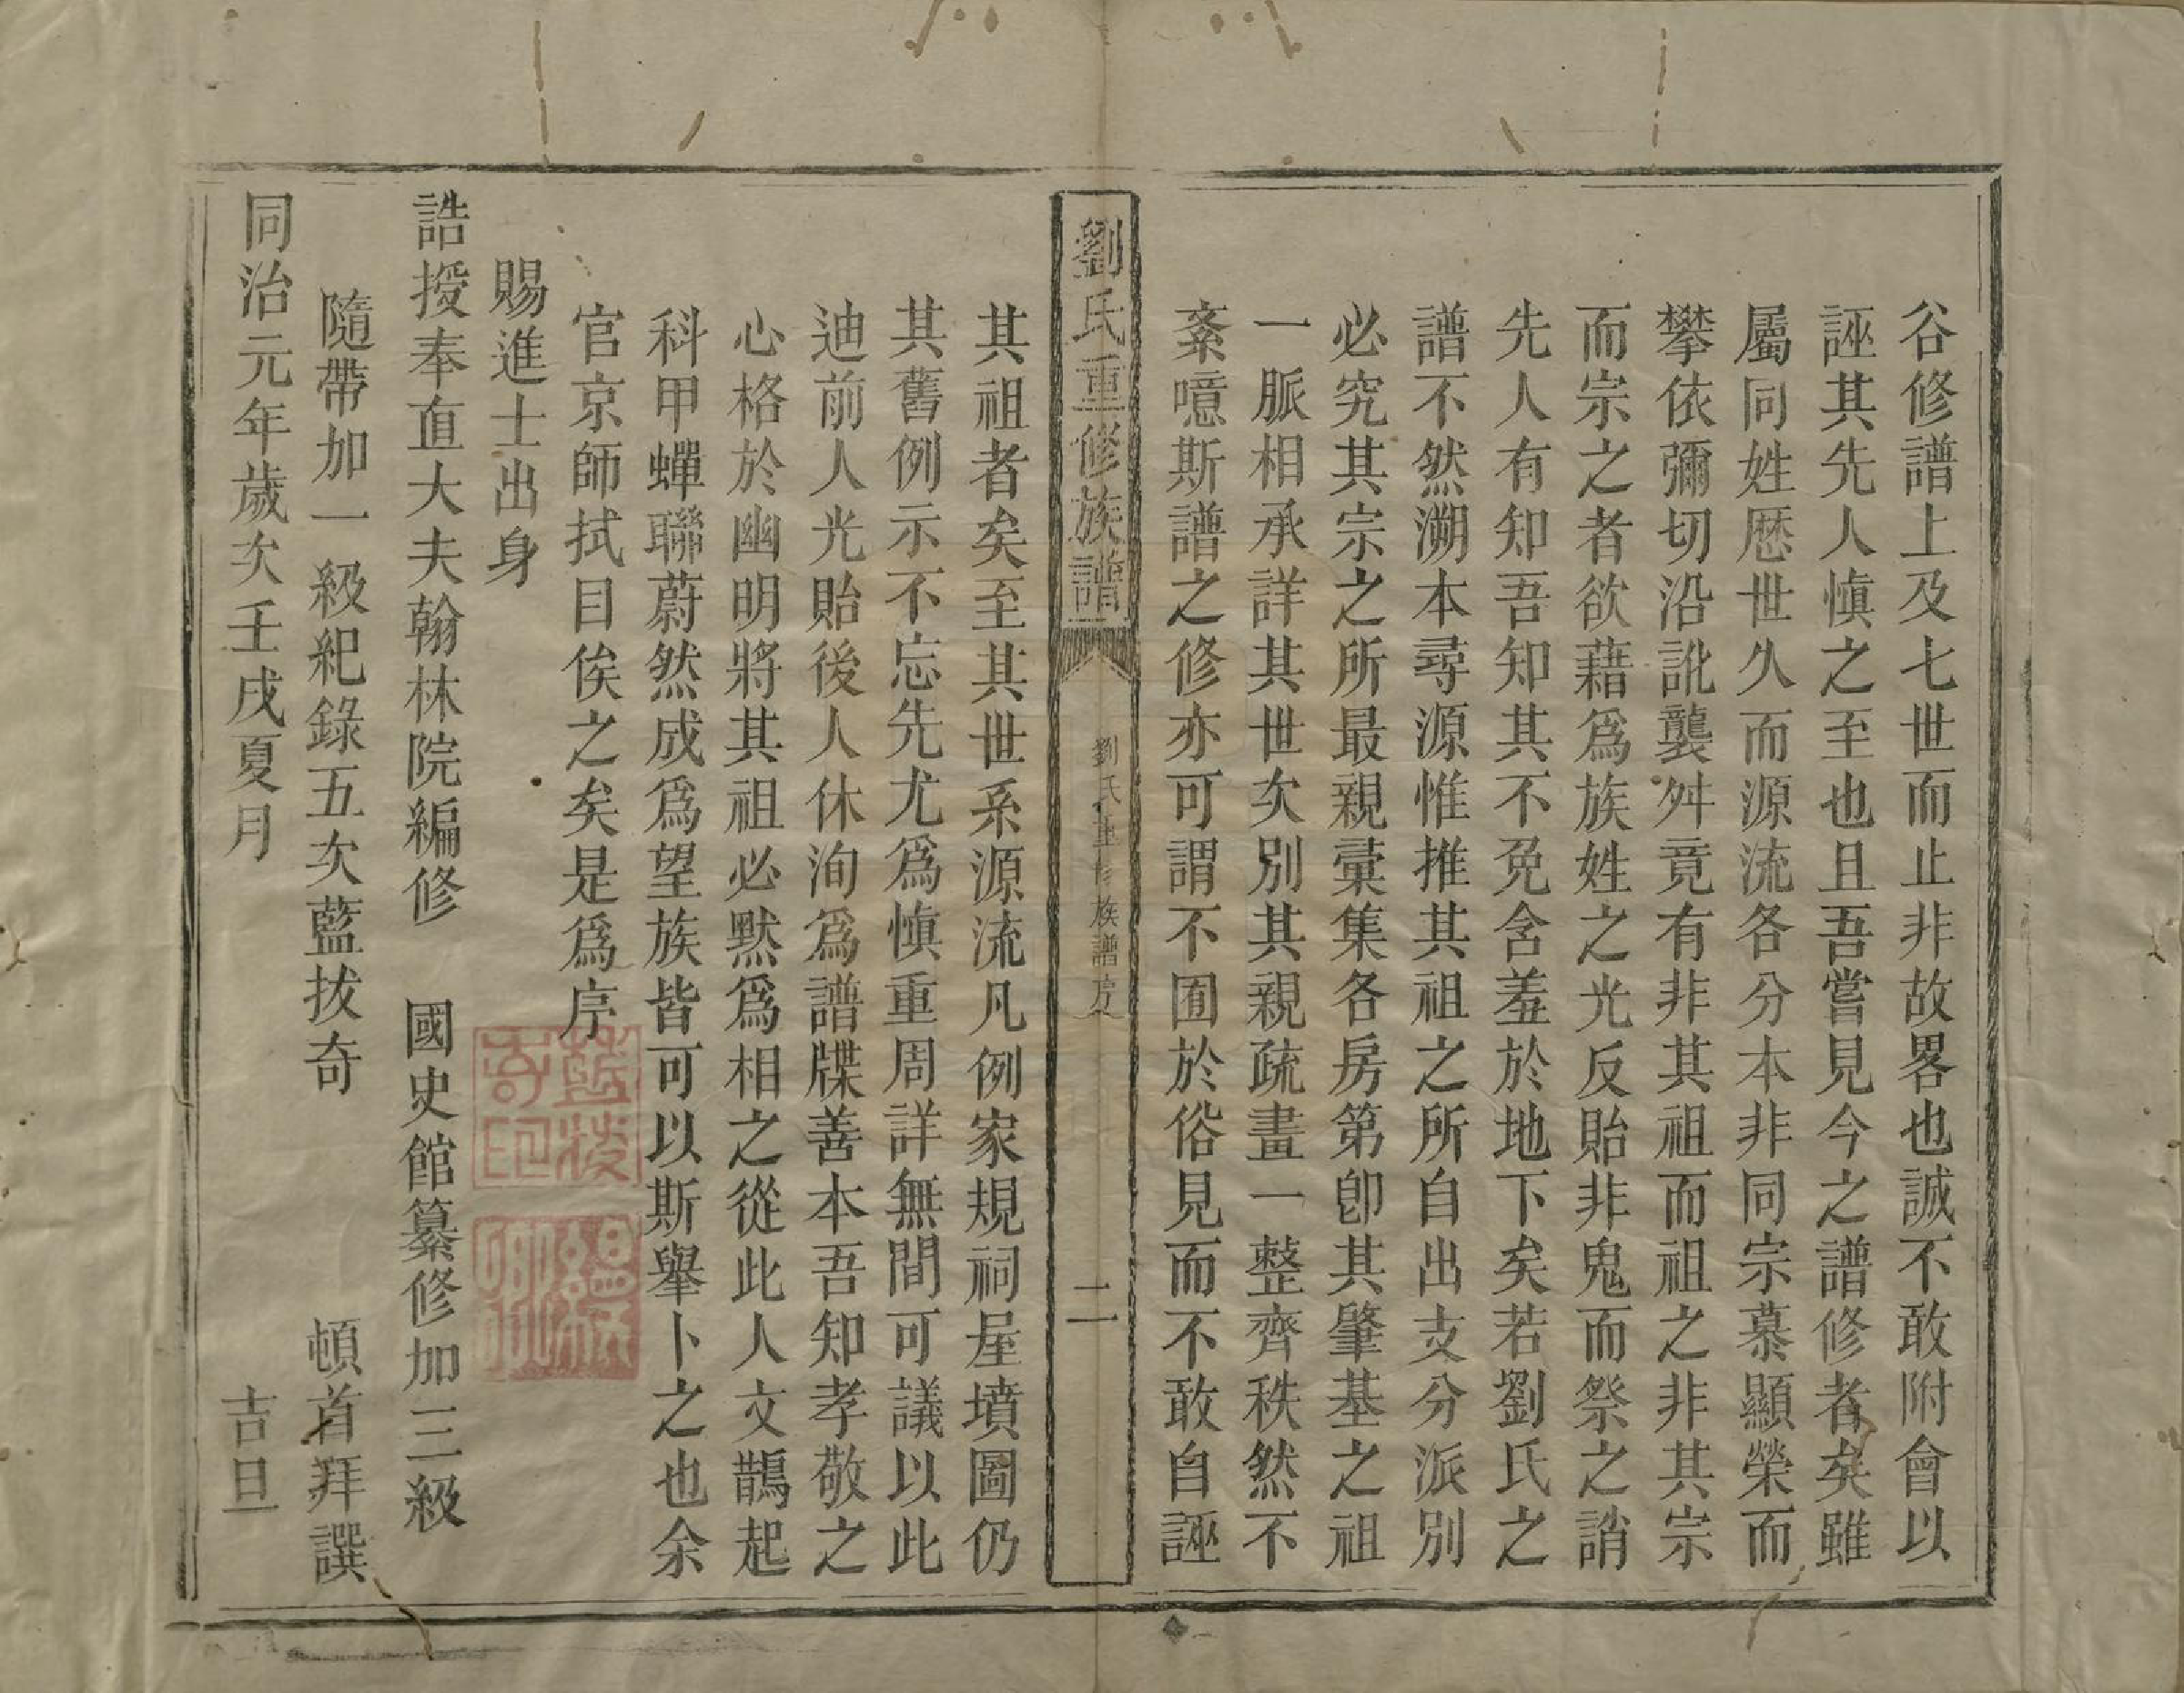 谷修譜上及七世而止非故畧也誠不敢附會以
誣其先人慎之至也且吾嘗見今之譜修者矣雖
屬同姓歴世久而源流各分本非同宗慕顯榮而
攀依彌切沿訛襲舛竟有非其祖而祖之非其宗
而宗之者欲藉爲族姓之光反貽非鬼而祭之誚
先人有知吾知其不免含羞於地下矣若劉氏之
譜不然溯本尋源惟推其祖之所自出支分派別
必究其宗之所最親彙集各房第卽其肇基之祖
一脈相承詳其世次別其親疏畫一整齊秩然不
紊噫斯譜之修亦可謂不囿於俗見而不敢自誣
劉氏重修族譜
劉氏重修族譜序
二
其祖者矣至其世系源流凡例家規祠屋墳圖仍
其舊例示不忘先尤爲慎重周詳無間可議以此
迪前人光貽後人休洵爲譜牒善本吾知孝敬之
心格於幽明將其祖必默爲相之從此人文鵲起
科甲蟬聯蔚然成爲望族皆可以斯舉卜之也余
官京師拭目俟之矣是爲序
賜進士出身
誥授奉直大夫翰林院編修 國史館纂修加三級
隨帶加一級紀錄五次藍拔奇 頓首拜譔
同治元年歲次壬戌夏月 吉旦
藍拔奇印